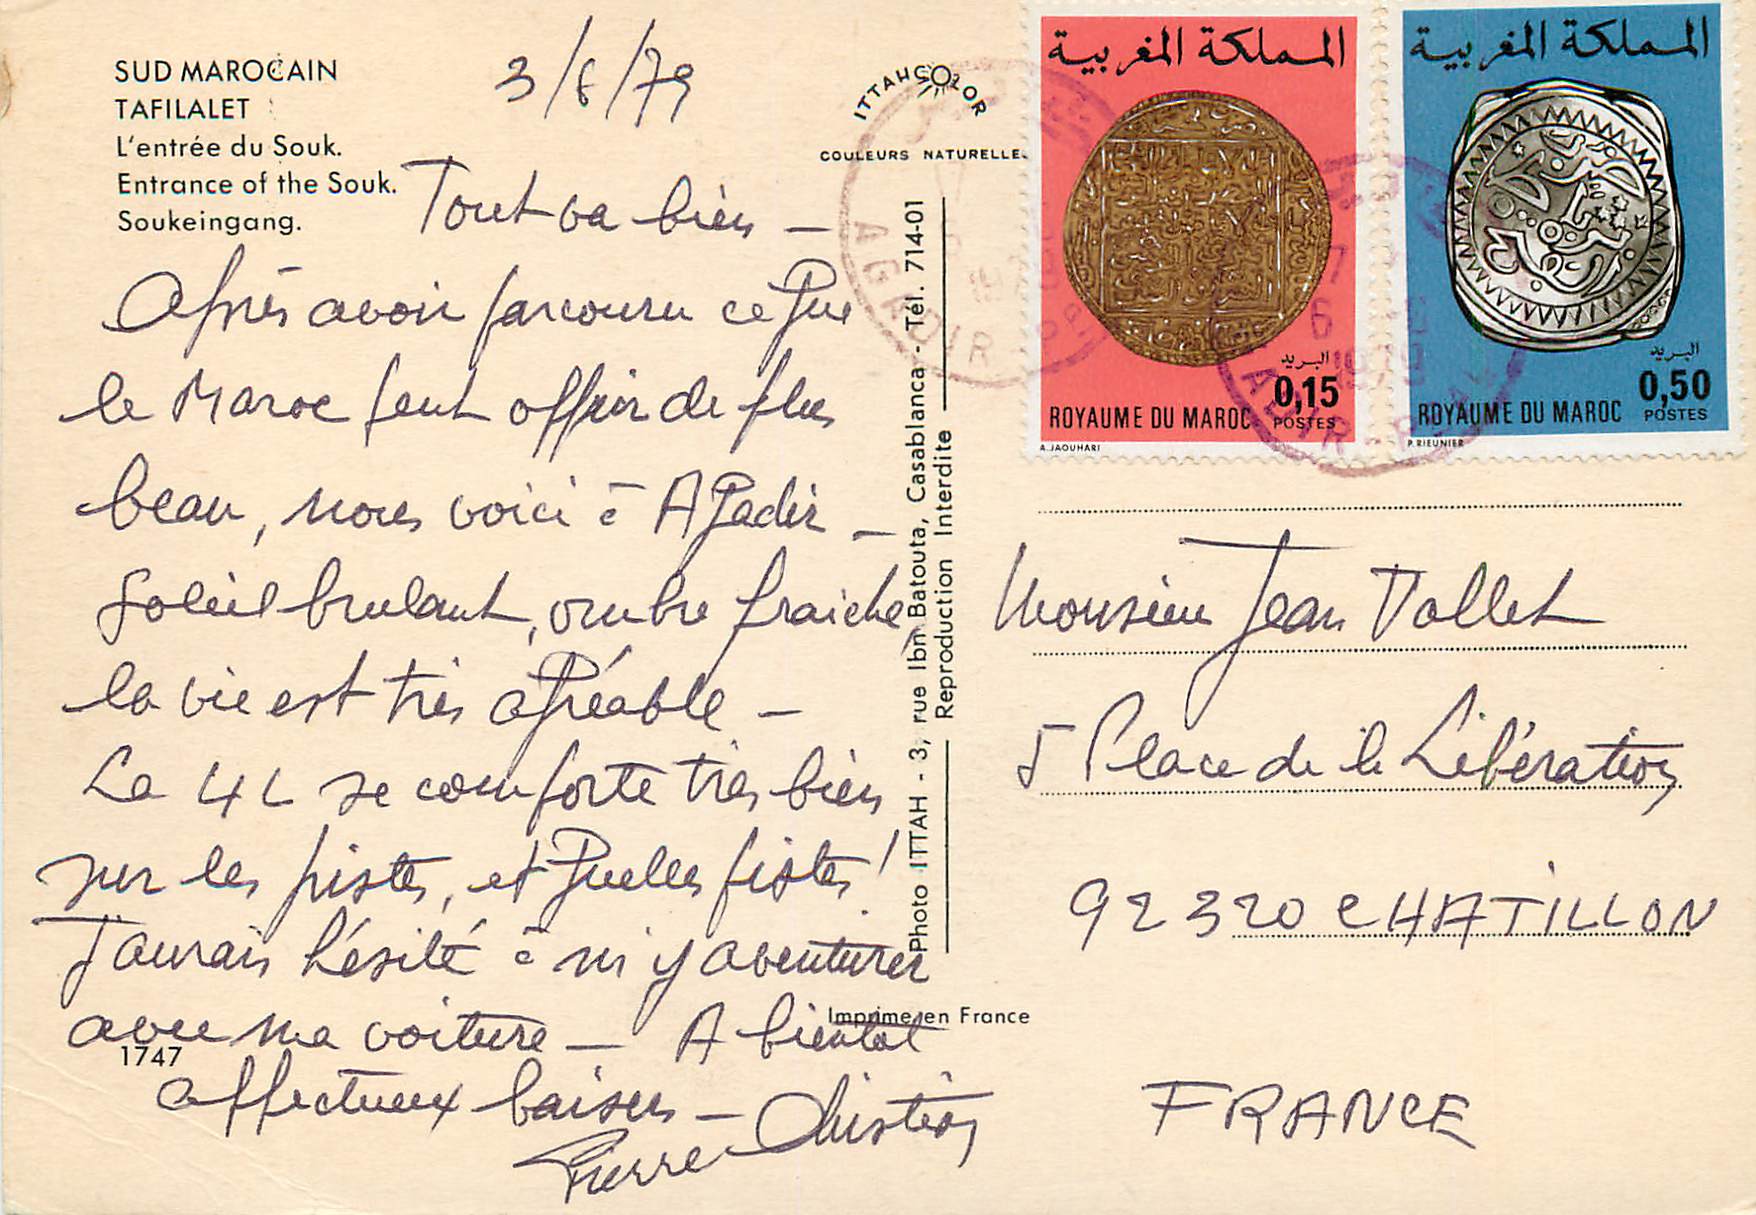 SUD MAROCAIN
TAFILALET
L'entrée du Souk.
Entrance of the Souk.
Soukeingang.
3/8/79
Tout va bien –
Après avoir parcouru ce que
le Maroc peut offrir de plus
beau, nous voici à Agadir –
Soleil brulant, ombre fraiche,
la vie est très agréable –
La 4L se comporte très bien
sur les pistes, et quelles pistes!
J'aurais hésité à m'y aventurer
avec ma voiture – A bientot
affectueux baisers – Christian
Pierre
1747
ITTAHCOLOR
COULEURS NATURELLES
Photo ITTAH - 3, rue Ibn Batouta, Casablanca - Tél. 714-01
Reproduction Interdite
Imprimé en France
المملكة المغربية
البريد
0,15
ROYAUME DU MAROC POSTES
A.JAOUHARI
المملكة المغربية
البريد
0,50
ROYAUME DU MAROC POSTES
P.RIEUNIER
AGADIR
7
6
1979
AGADIR
Monsieur Jean Vallet
5 Place de la Libération
92320 CHATILLON
FRANCE